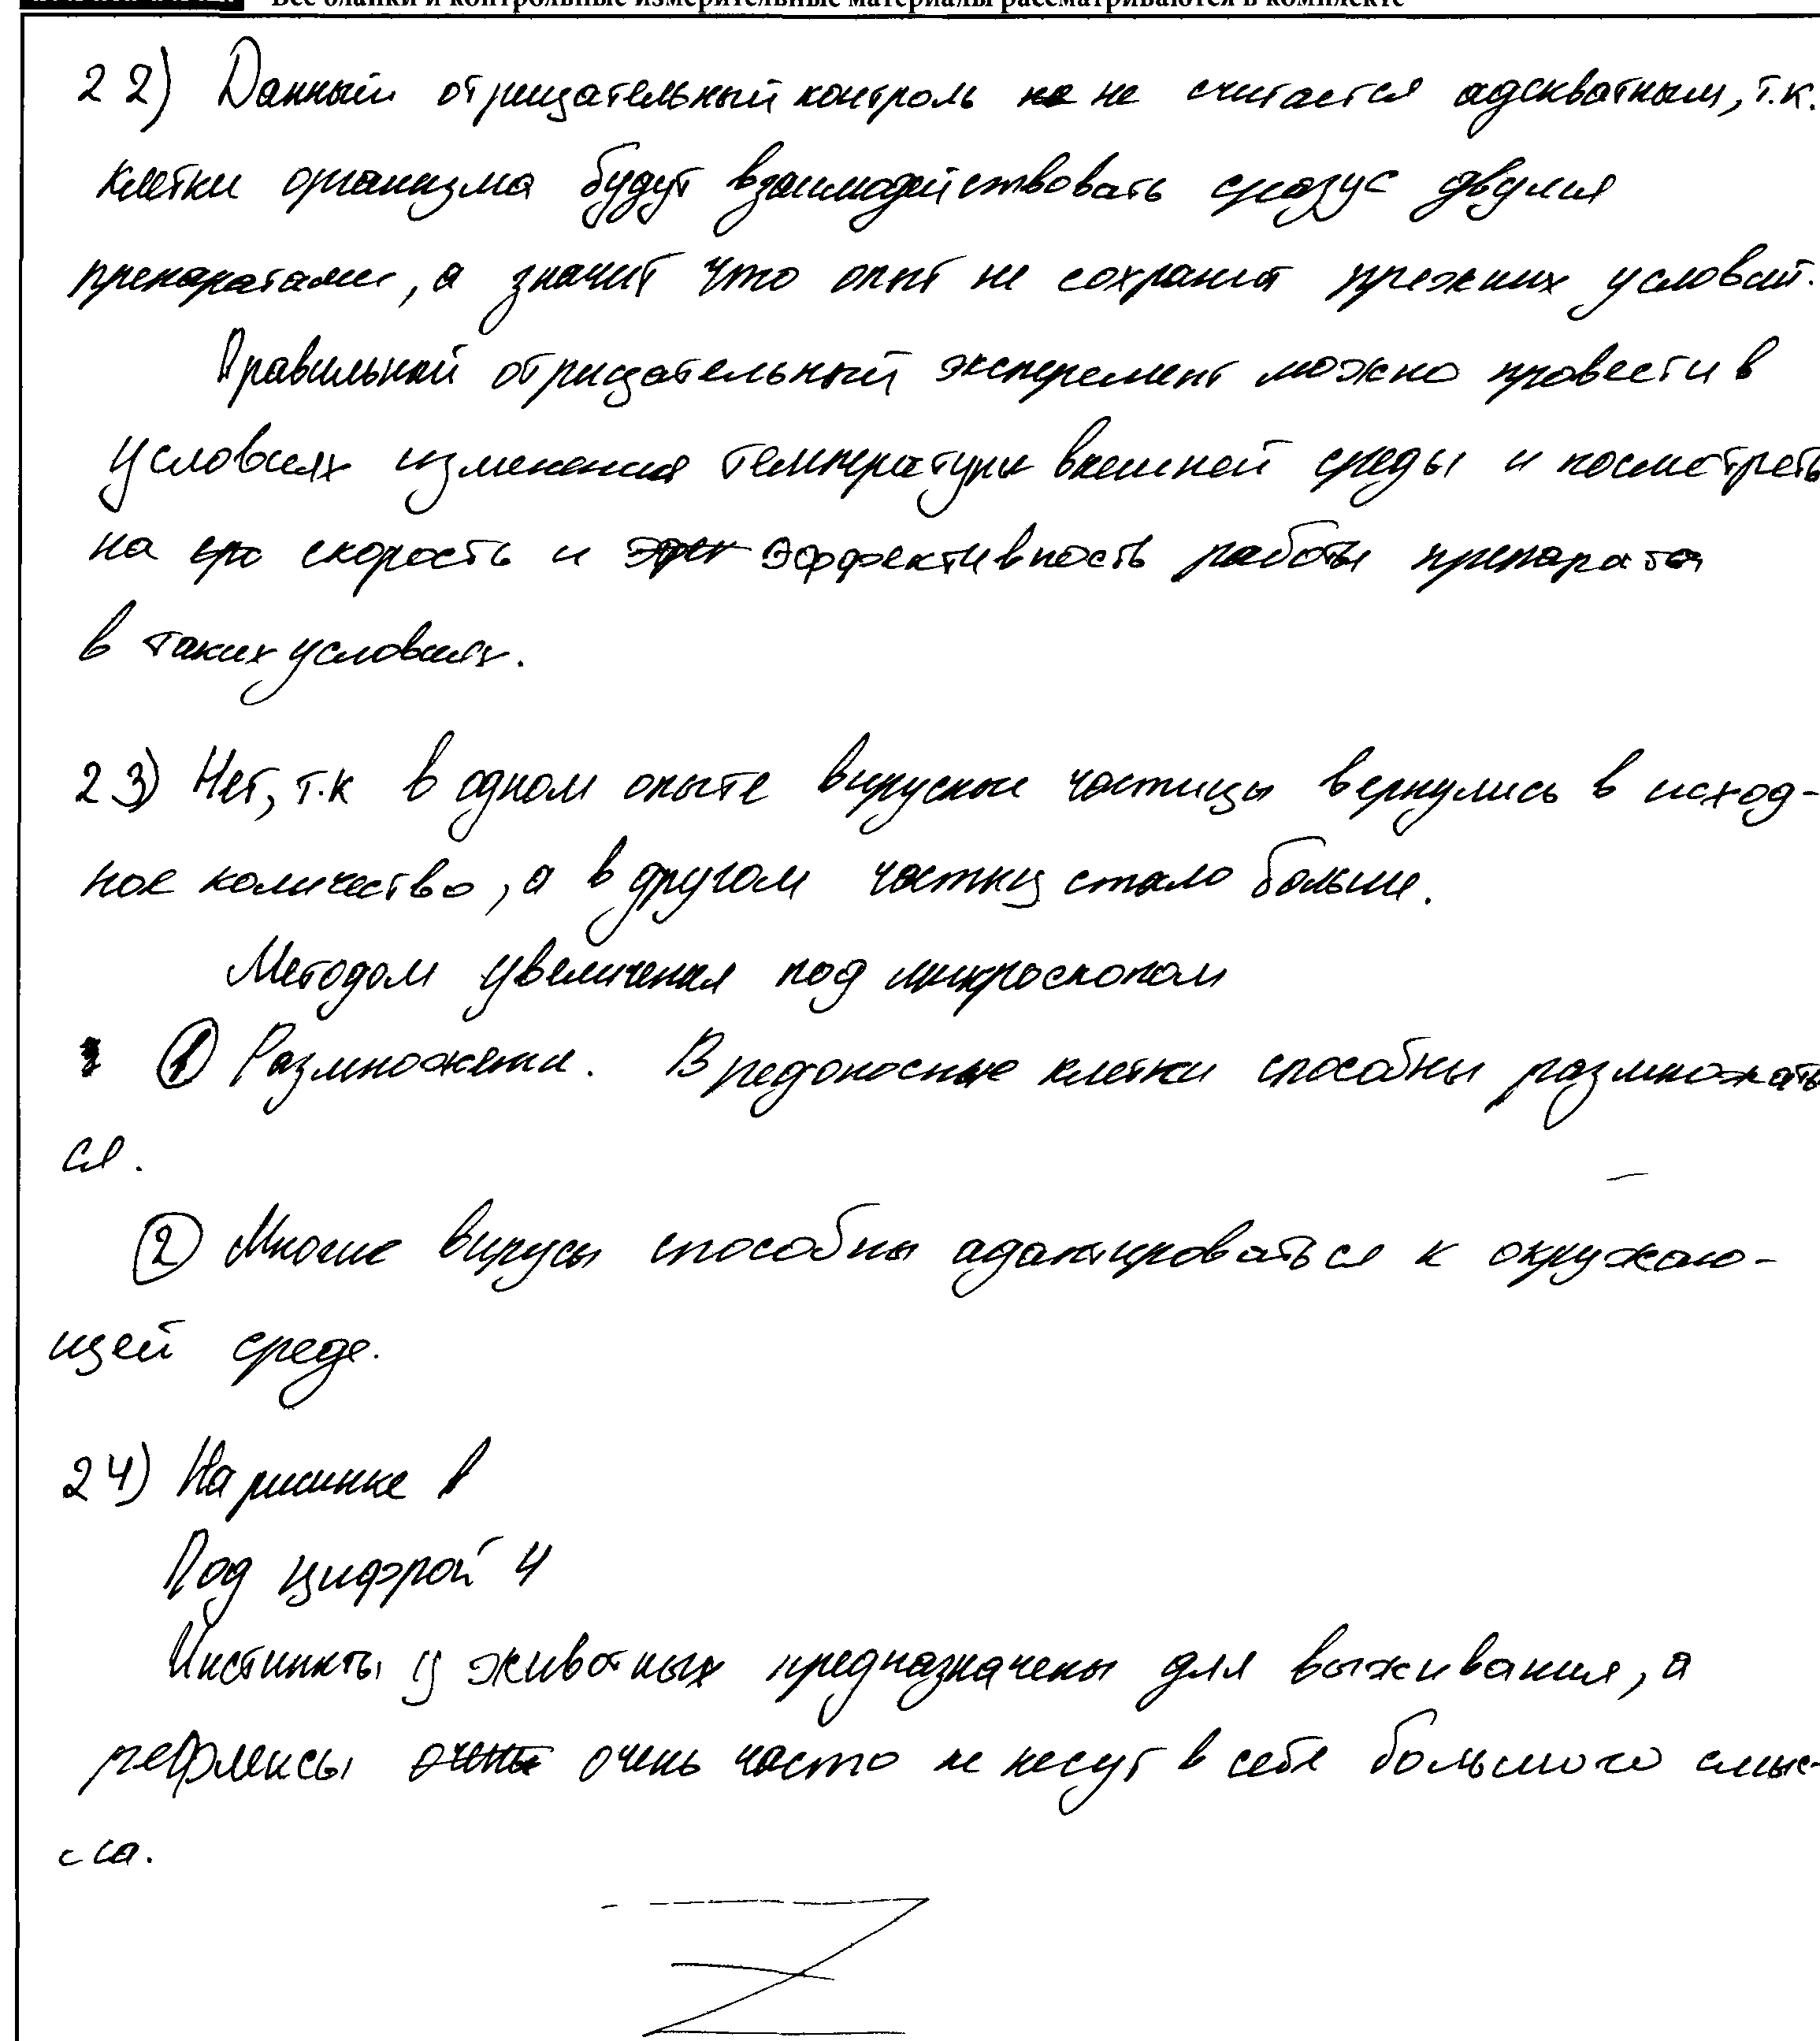 Все бланки и контрольные измерительные материалы рассматриваются в комплекте
22) Данный отрицательный контроль не не считается адекватным, т.к.
клетки организма будут взаимодействовать сразу с двумя
препаратами, а значит что опыт не сохранит прежних условий.
Правильный отрицательный эксперемент можно провести в
условиях изменения температуры внешней среды и посмотреть
на сро скорость и эфек эффективность работы препарата
в таких условиях.
23) Нет, т.к в одном опыте вирусные частицы вернулись в исход-
ное количество, а в другом частиц стало больше.
Методом увеличения под микроскопом
① Размножение. Вредоносные клетки способны размножать
ся.
② Многие вирусы способны адаптироваться к окружаю-
щей среде.
24) На рисунке
Под цифрой 4
Инстинкты у животных предназначены для выживания, а
рефлексы очень очень часто не несут в себе большого смыс-
ла.
Z